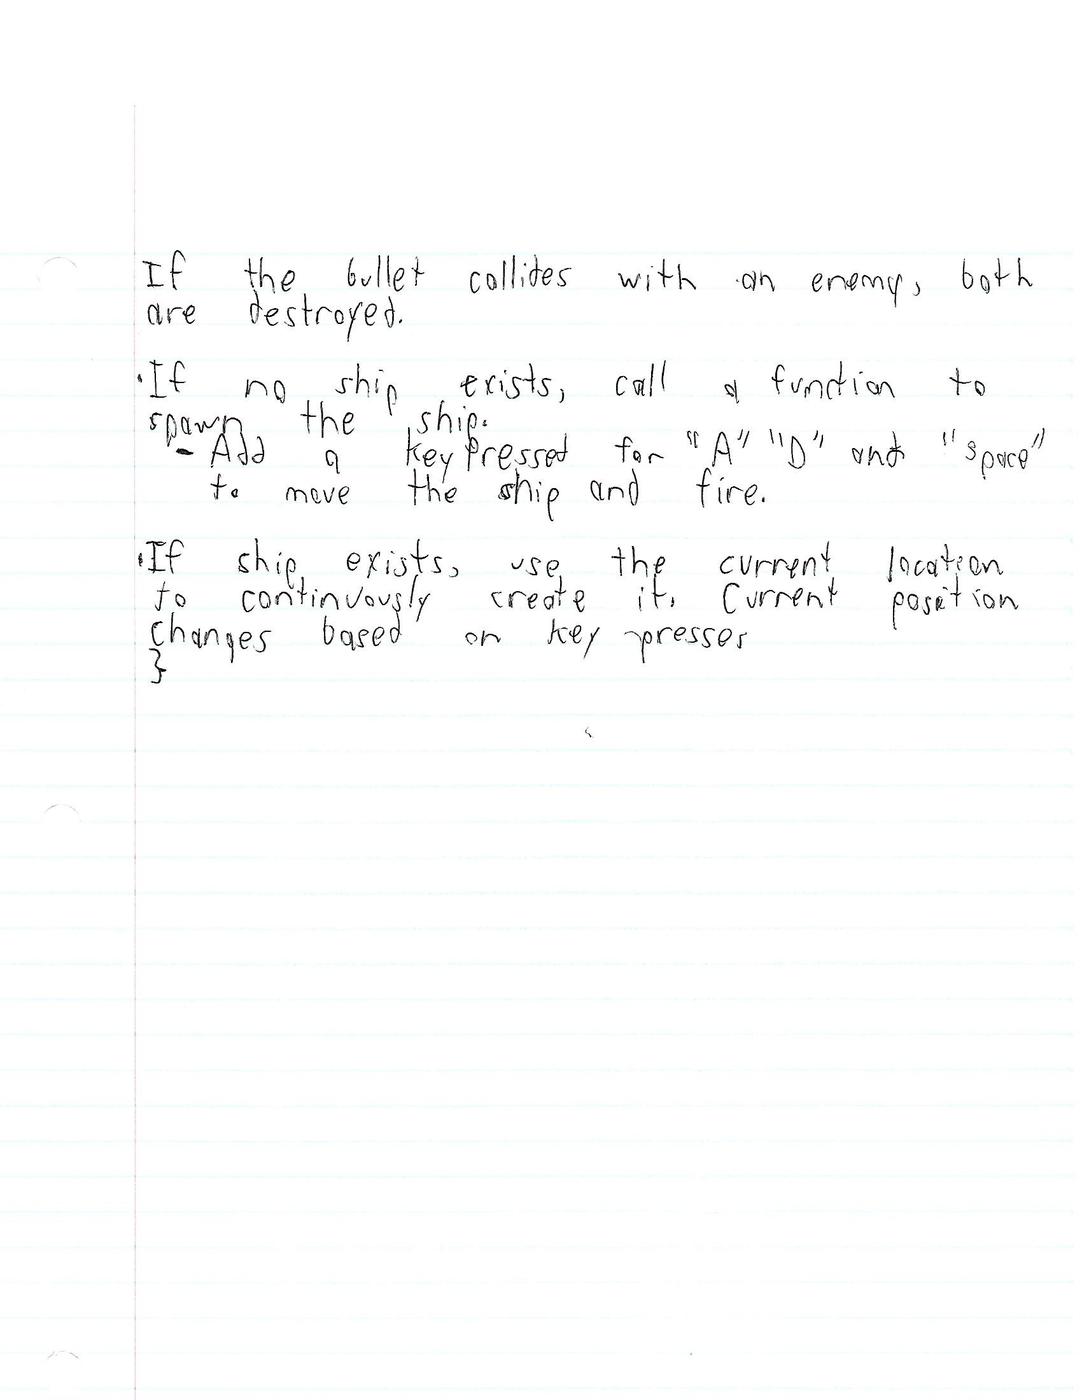 If the bullet collides with an enemy, both
are destroyed.
·If no ship exists, call a function to
spawn the ship.
- Add a keyPressed for "A" "D" and "space"
to move the ship and fire.
·If ship exists, use the current location
to continuously create it. Current position
changes based on key presses
}